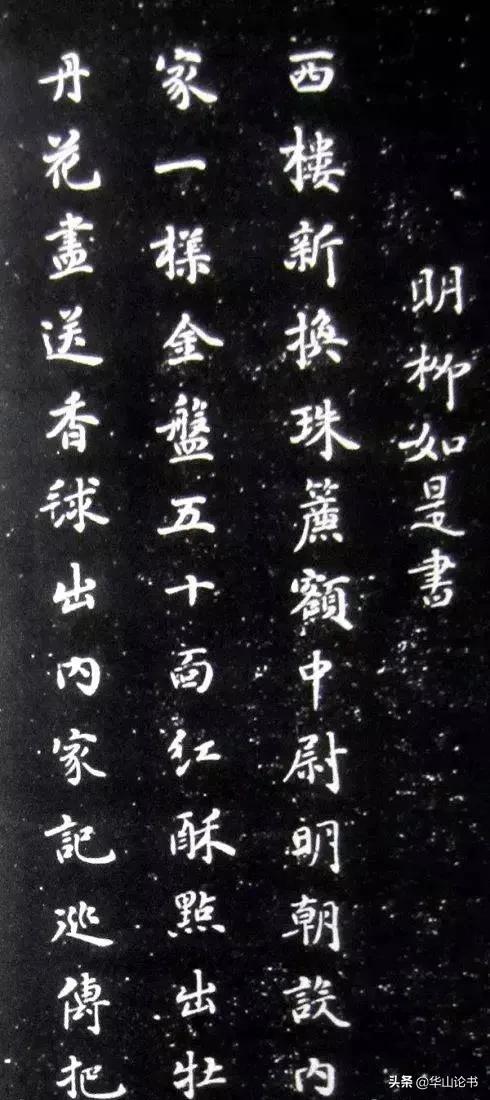 明柳如是書
西樓新換珠簾額中尉明朝設内
家一樣金盤五十面紅酥點出牡
丹花盡送香毬出内家記巡傳把
头条 @华山论书